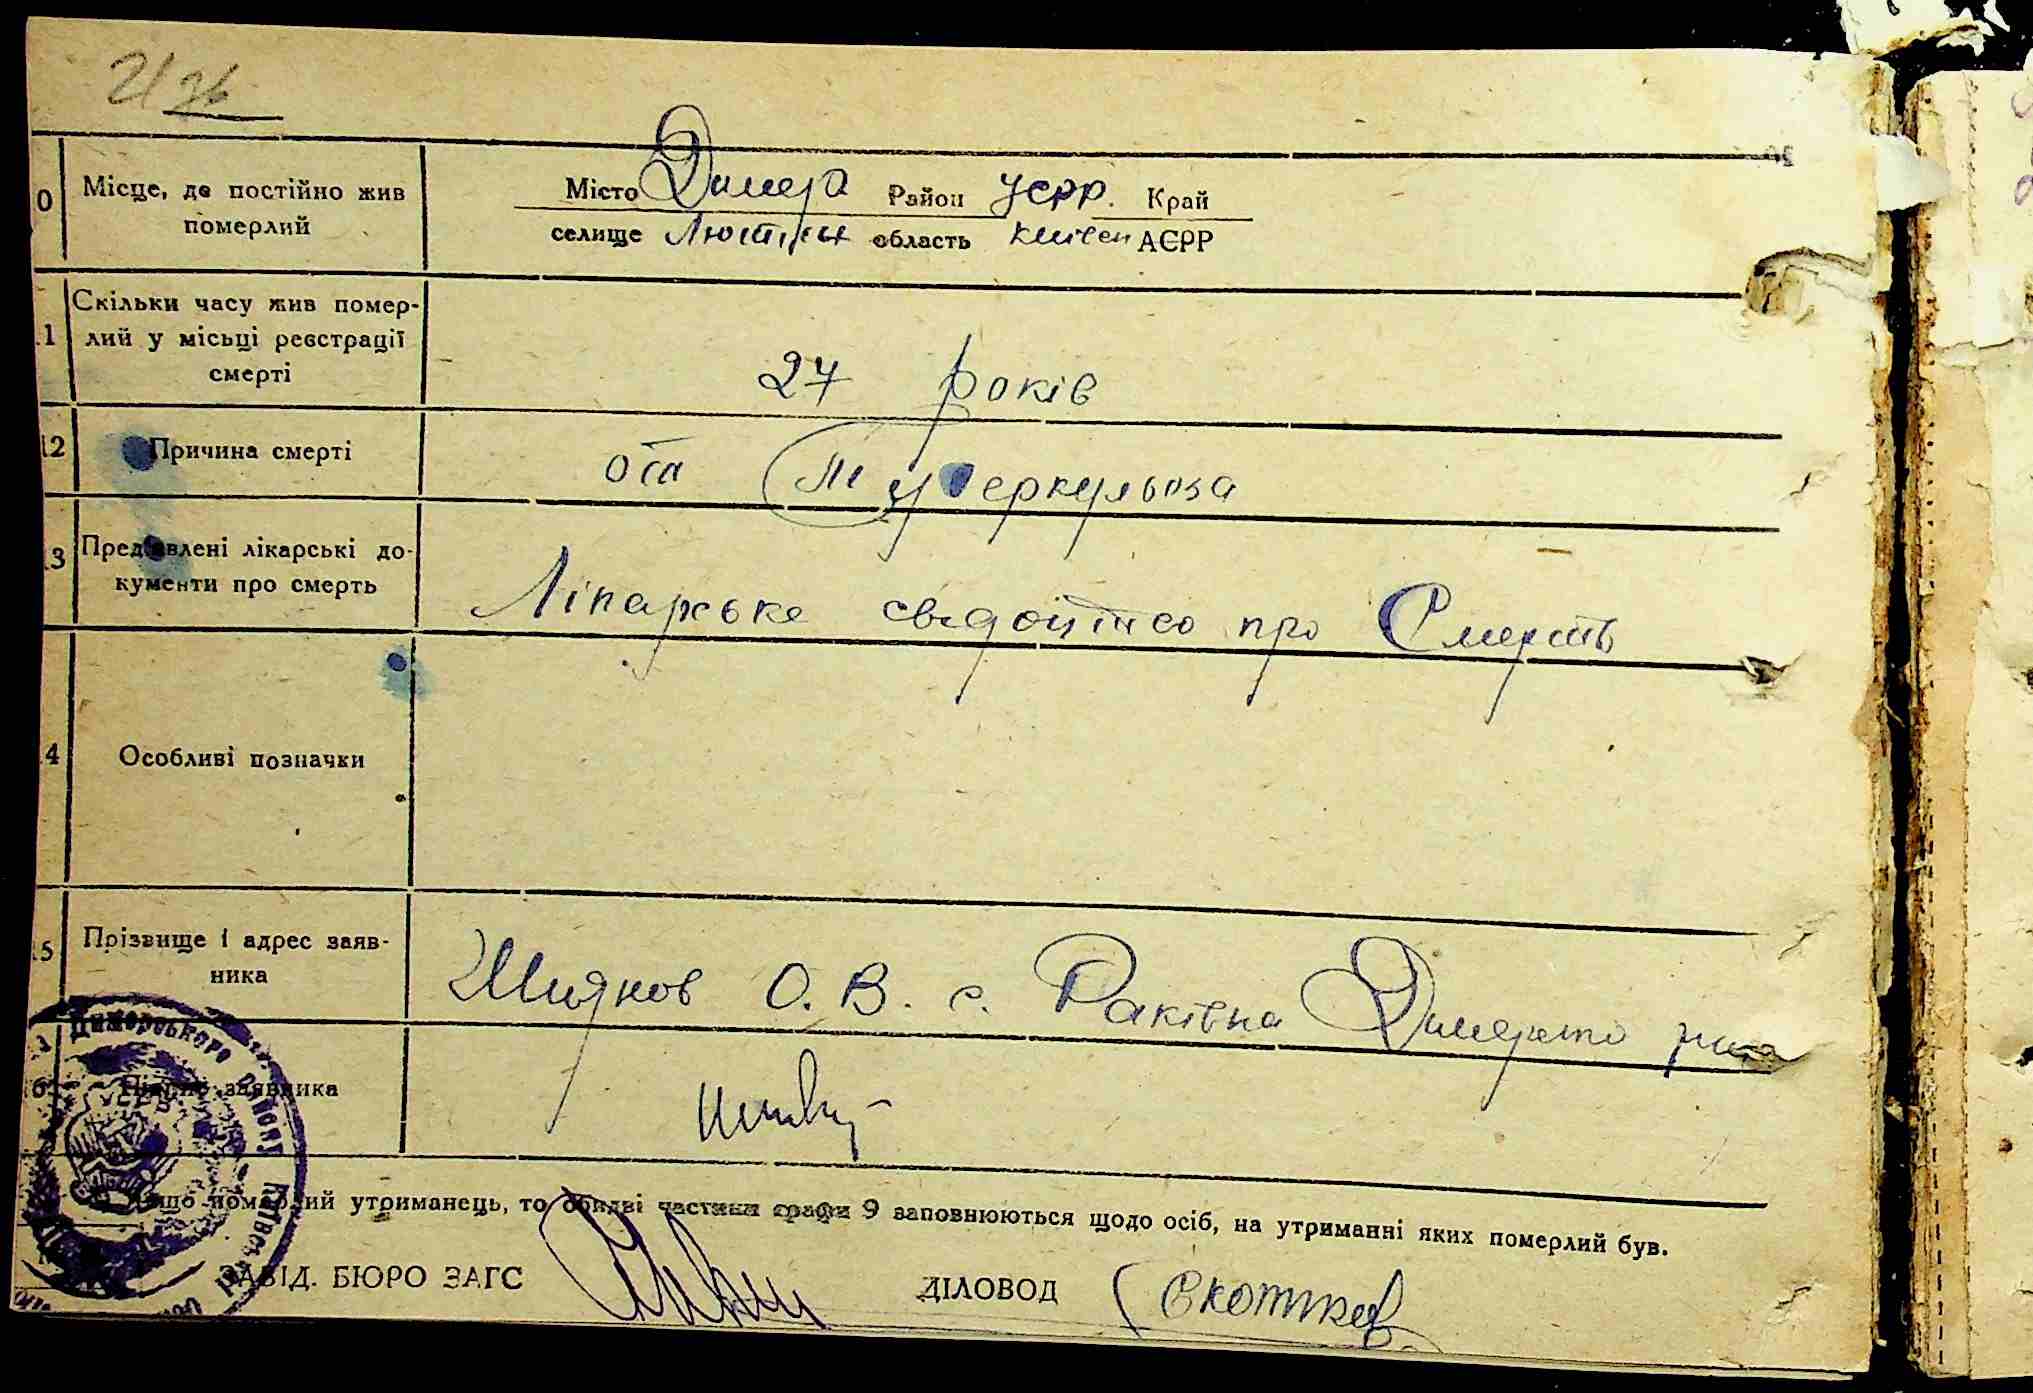 10 Місце, де постійно жив
померлий
Місто Димер Район УСРР. Край
селище область Києвск АСРР
11 Скільки часу жив помер-
лий у місьці реєстрації
смерті
27 років
12 Причина смерті
от туберкульоза
13 Пред'явлені лікарські до-
кументи про смерть
Лікарське свідоцтво про Смерть
14 Особливі позначки
15 Прізвище і адрес заяв-
ника
О. В. с. Раківка
16 Підпис заявника
Якщо померлий утриманець, то обидві частини графи 9 заповнюються щодо осіб, на утриманні яких померлий був.
ЗАВІД. БЮРО ЗАГС ДІЛОВОД
Димерського району Київськ